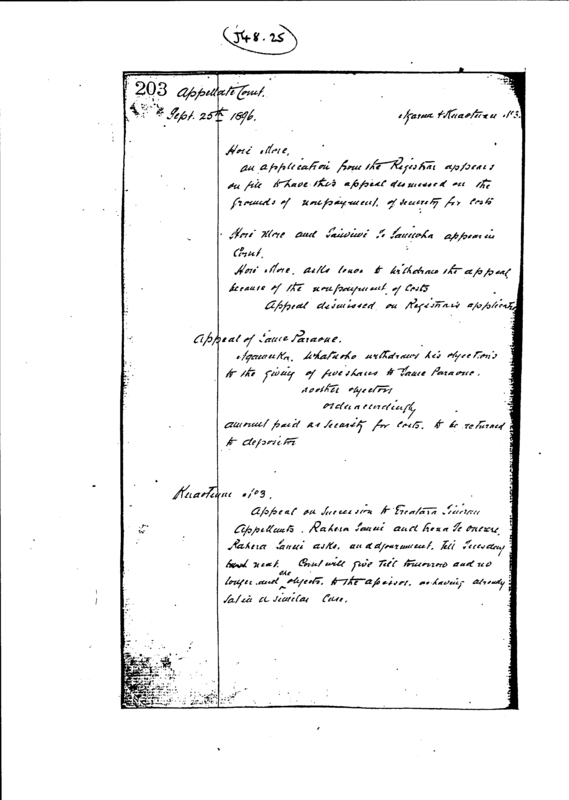 J48.25
203 Appellate Court.
Sept. 25th 1896.
No 3.
Hori More.
an application from the Registrar appears
on file to have this appeal dismissed on the
grounds of nonpayment of security for costs
Hori More and Te appear in
Court.
Hori More. asks leave to withdraw the appeal
because of the nonpayment of Costs
Appeal dismissed on Registrar's application
Appeal of Paraone.
withdraws his objections
to the giving of five shares to Paraone.
no other objectors
order accordingly
amount paid as security for costs. to be returned
to depositor
No 3.
Appeal on Succession to
Appellants. Rahera and Te
Rahera asks. an adjournment. till Tuesday
next. Court will give till tomorrow and no
longer. and she objects. to the assessor. as having already
sat in a similar Case.